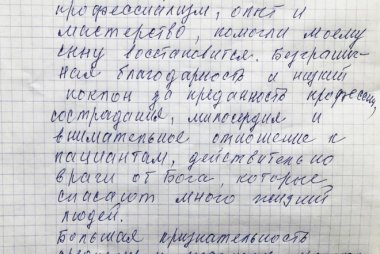 профессионализм, опыт и
мастерство, помогли моему
сыну восстановится. Безгранич-
ная благодарность и низкий
поклон за преданность профессии,
сострадания, милосердия и
внимательное отношение к
пациантам, действительно
врачи от Бога, которые
спасают много жизней
людей.
Большая признательность